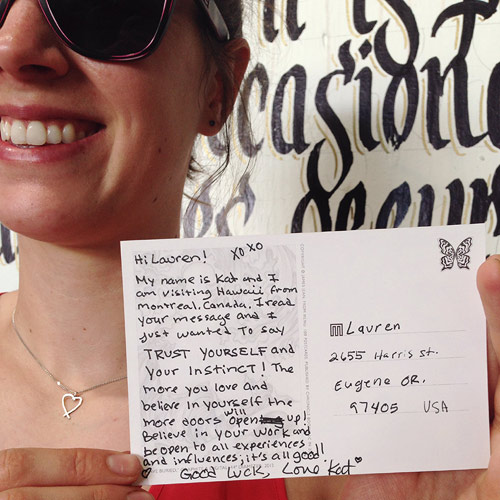 it is
casiont
es decum
Hi Lauren! XO XO
My name is Kat and I
am visiting Hawaii from
montreal, Canada. I read
your message and I
just wanted To say
TRUST YOURSELF and
your Instinct! The
more you love and
believe in yourself the
more doors will open up!
Believe in your work and
be open to all experiences
and influences; it's all good!
Good Luck, Love Kat
Lauren
2655 Harris st.
Eugene OR.
97405 USA